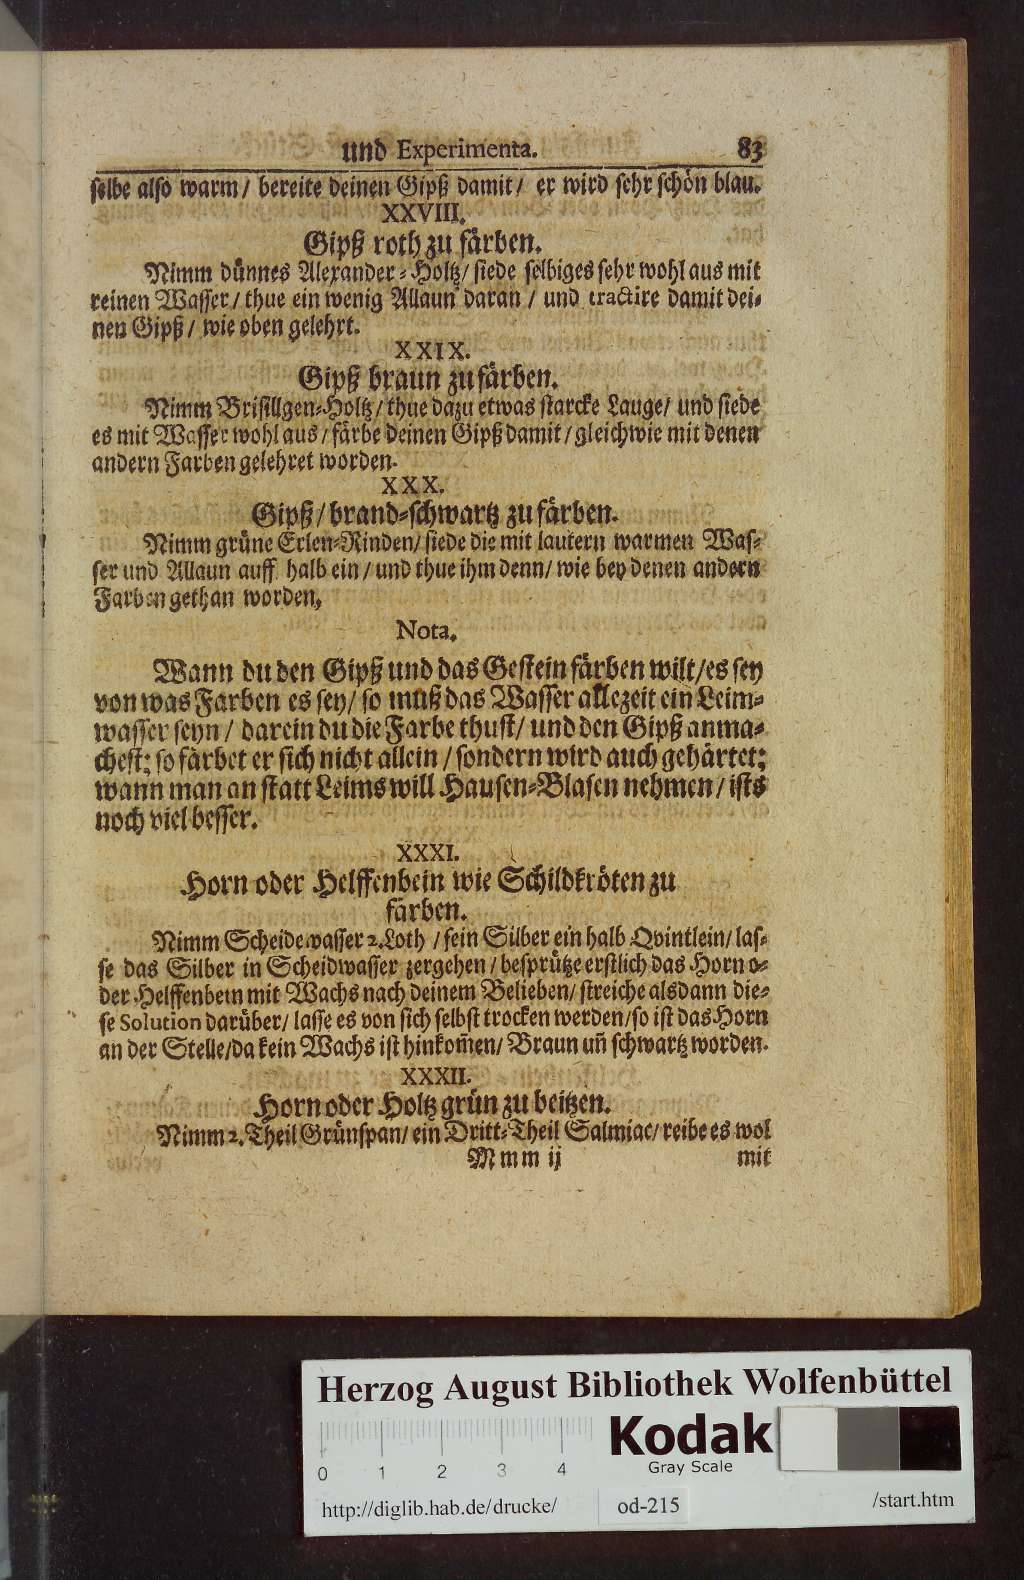 und Experimenta. 83
selbe also warm / bereite deinen Gipß damit / er wird sehr schön blau.
XXVIII.
Gipß roth zu färben.
Nimm dünnes Alexander-Holtz / siede selbiges sehr wohl aus mit
reinen Wasser / thue ein wenig Allaun daran / und tractire damit dei-
nen Gipß / wie oben gelehrt.
XXIX.
Gipß braun zu färben.
Nimm Brisillgen-Holtz / thue dazu etwas starcke Lauge / und siede
es mit Wasser wohl aus / färbe deinen Gipß damit / gleichwie mit denen
andern Farben gelehret worden.
XXX.
Gipß / brand-schwartz zu färben.
Nimm grüne Erlen-Rinden / siede die mit lautern warmen Was-
ser und Allaun auff halb ein / und thue ihm denn / wie bey denen andern
Farben gethan worden,
Nota.
Wann du den Gipß und das Gestein färben wilt / es sey
von was Farben es sey / so muß das Wasser allezeit ein Leim-
wasser seyn / darein du die Farbe thust / und den Gipß anma-
chest; so färbet er sich nicht allein / sondern wird auch gehärtet;
wann man an statt Leims will Hausen-Blasen nehmen / ists
noch viel besser.
XXXI.
Horn oder Helffenbein wie Schildkröten zu
färben.
Nimm Scheidewasser 2. Loth / fein Silber ein halb Qvintlein / las-
se das Silber in Scheidwasser zergehen / besprütze erstlich das Horn o-
der Helffenbein mit Wachs nach deinem Belieben / streiche alsdann die-
se Solution darüber / lasse es von sich selbst trocken werden / so ist das Horn
an der Stelle / da kein Wachs ist hinkom̃en / Braun uñ schwartz worden.
XXXII.
Horn oder Holtz grün zu beitzen.
Nimm 2. Theil Grünspan / ein Dritt-Theil Salmiac / reibe es wol
Mmm ij mit
Herzog August Bibliothek Wolfenbüttel
Kodak
Gray Scale
0 1 2 3 4
http://diglib.hab.de/drucke/ od-215 /start.htm